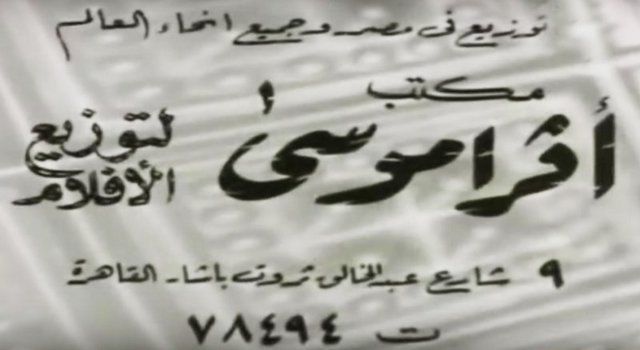 توزيع فى مصر وجميع انحاء العالم
مكتب
أفراموسى لتوزيع الأفلام
٩ شارع عبد الخالق ثروت باشا - القاهرة
ت ٧٨٤٩٤